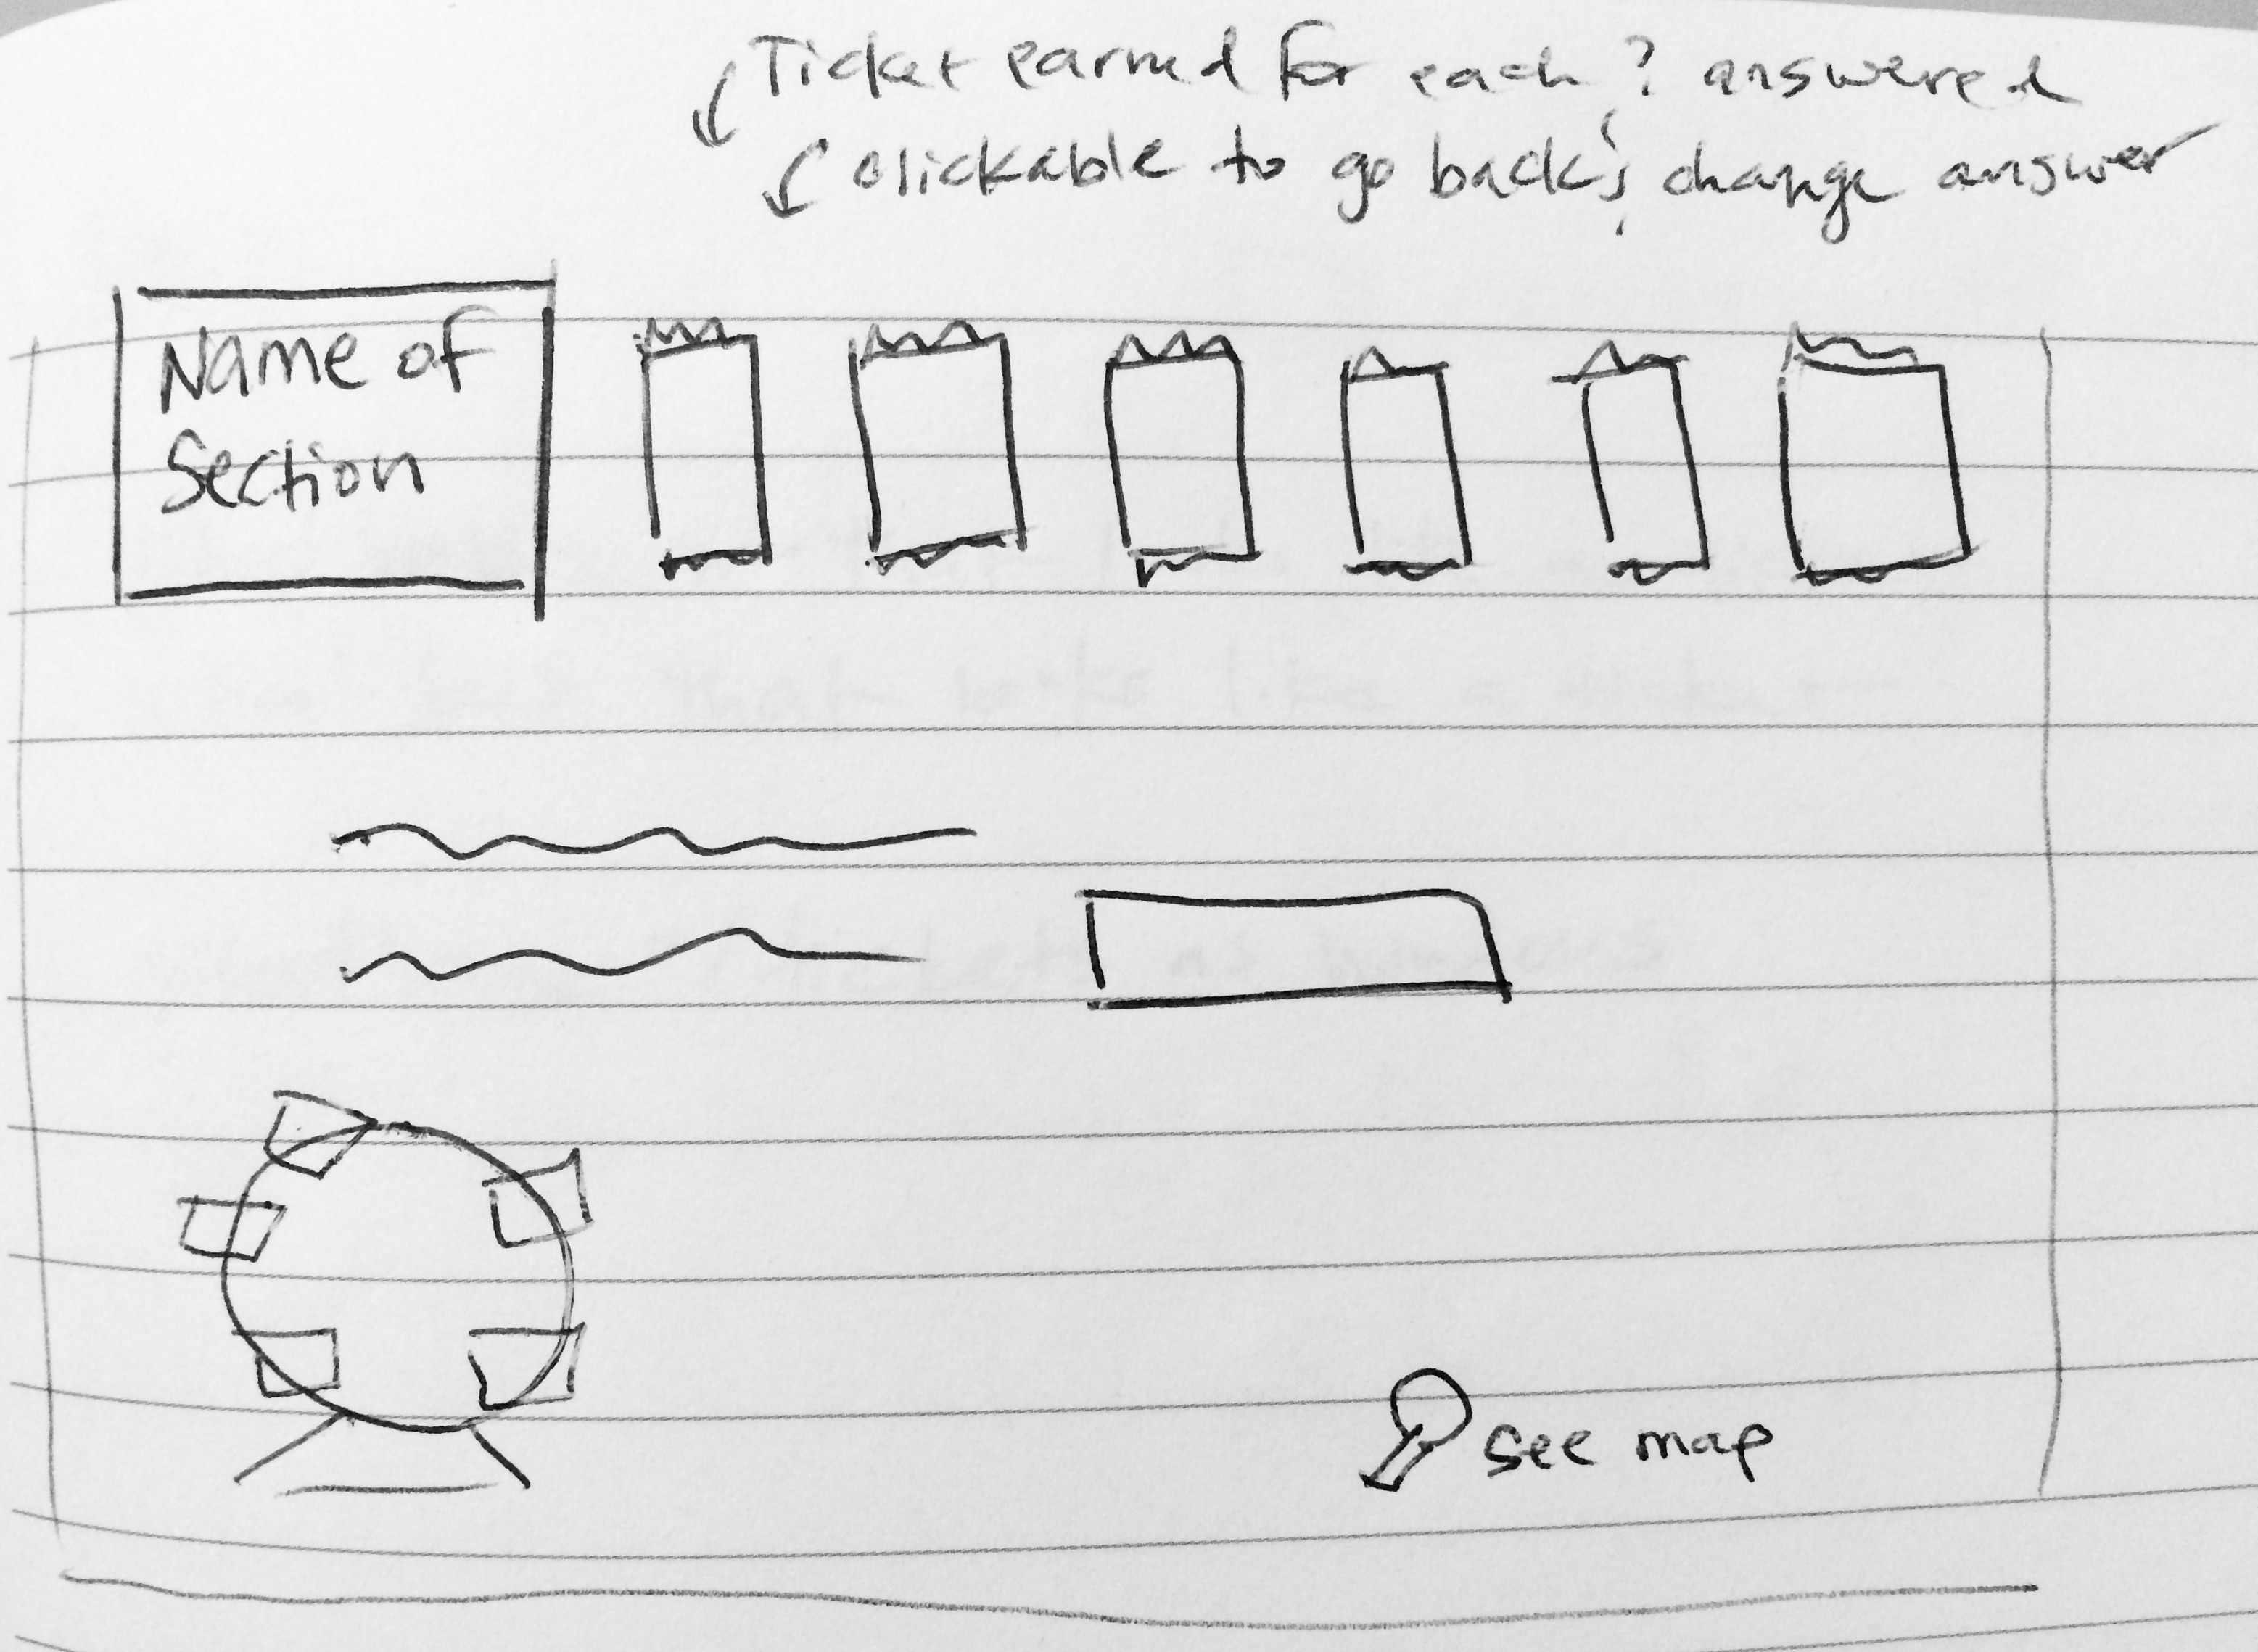 Ticket earned for each ? answered
clickable to go back & change answer
Name of
Section
see map